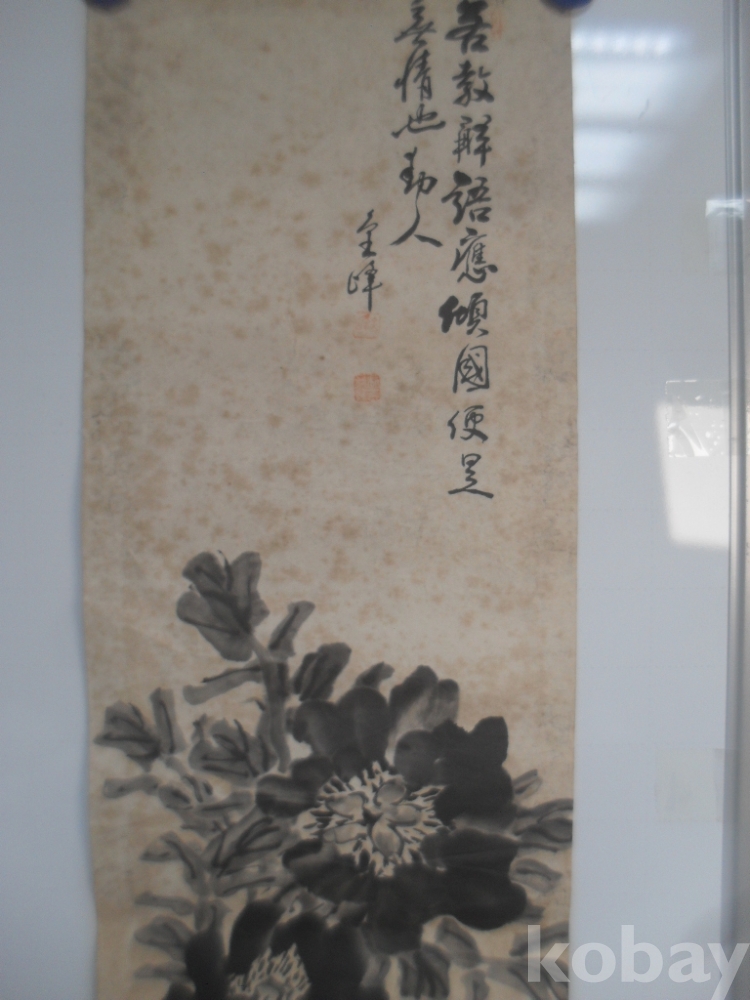 若教解語應傾國便是
無情也動人
峰
kobay